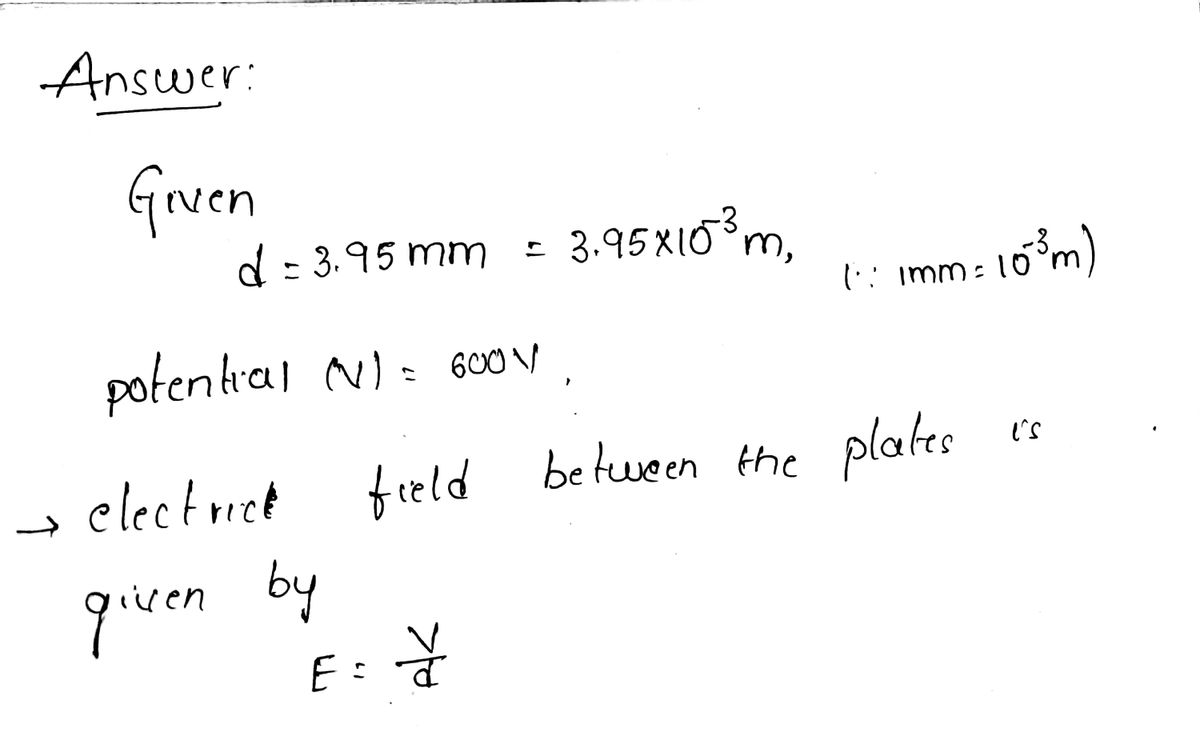 Answer:
Given
d = 3.95 mm = 3.95×10⁻³ m, (∵ 1mm = 10⁻³m)
potential (V) = 600V,
→ electric field between the plates is
given by
E = V/d